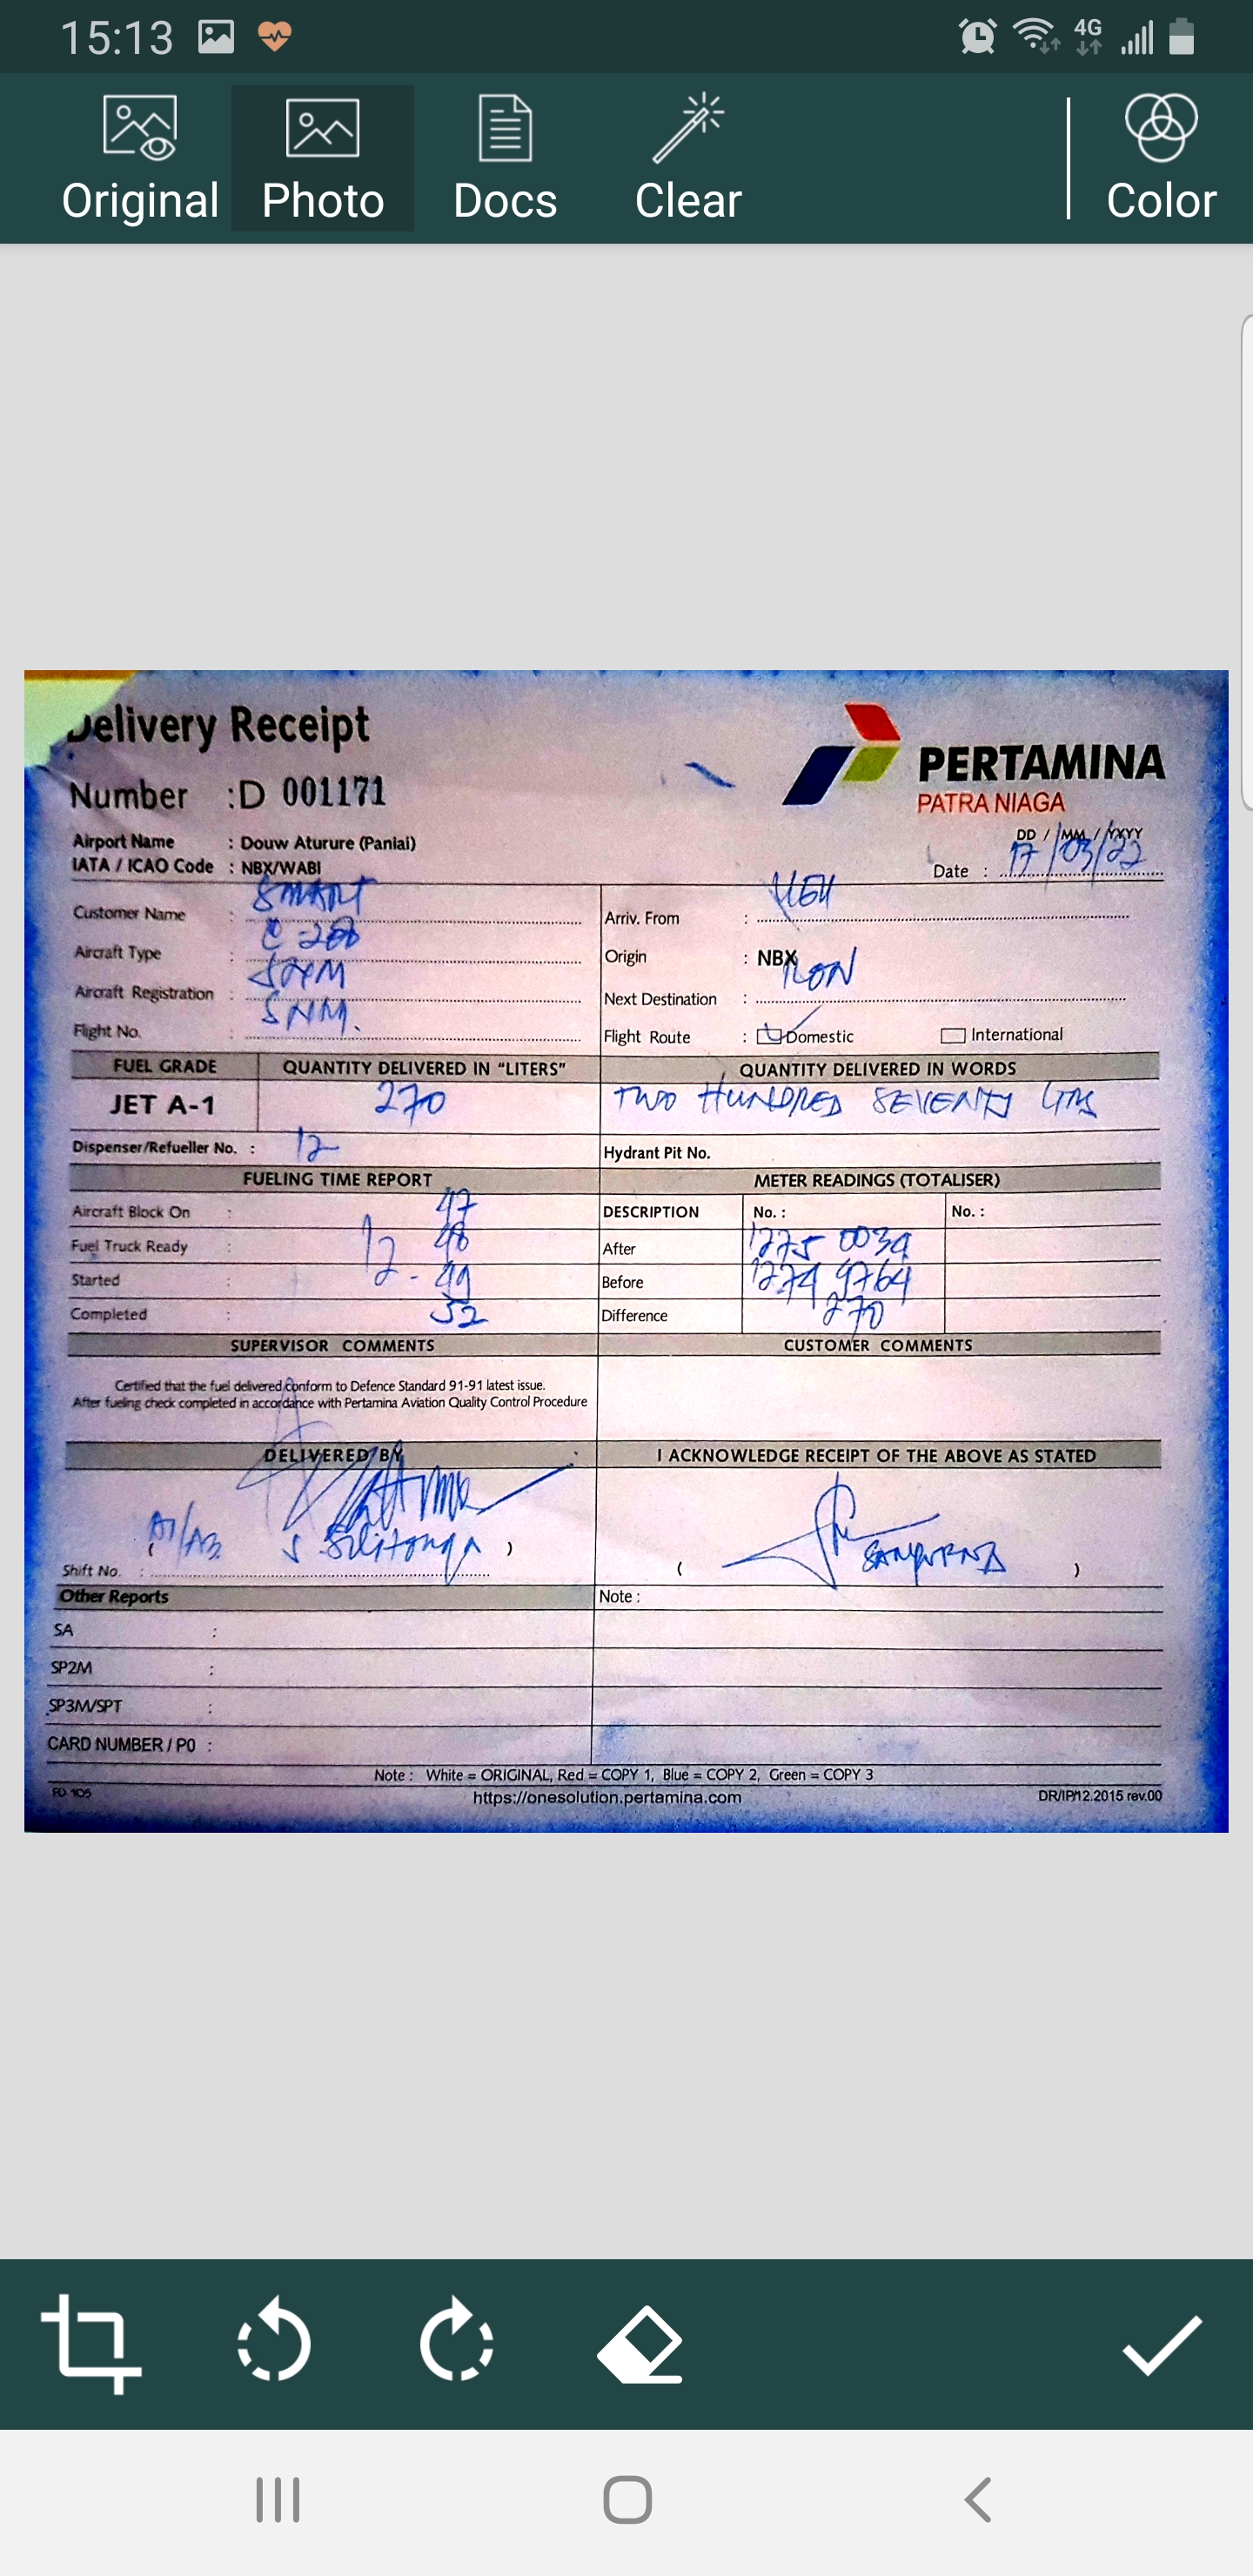 15:13 4G
Original Photo Docs Clear Color
Delivery Receipt
PERTAMINA
PATRA NIAGA
Number :D 001171
Airport Name : Douw Aturure (Paniai)
IATA / ICAO Code : NBX/WABI
DD / MM / YYYY
Date : 17/03/22
Customer Name : SMART
Arriv. From :
Aircraft Type :
Origin : NBX
Aircraft Registration :
Next Destination :
Flight No. : SNM.
Flight Route : Domestic International
FUEL GRADE QUANTITY DELIVERED IN "LITERS" QUANTITY DELIVERED IN WORDS
JET A-1 270 TWO HUNDRED SEVENTY LTRS
Dispenser/Refueller No. : 12 Hydrant Pit No.
FUELING TIME REPORT METER READINGS (TOTALISER)
Aircraft Block On : 47 DESCRIPTION No. : No. :
Fuel Truck Ready : 48 After 1275 0034
Started : 12 - 49 Before 1274 9764
Completed : 52 Difference 270
SUPERVISOR COMMENTS CUSTOMER COMMENTS
Certified that the fuel delivered conform to Defence Standard 91-91 latest issue.
After fueling check completed in accordance with Pertamina Aviation Quality Control Procedure
DELIVERED BY I ACKNOWLEDGE RECEIPT OF THE ABOVE AS STATED
( )
( )
Shift No. :
Other Reports Note :
SA :
SP2M :
SP3M/SPT :
CARD NUMBER / P0 :
Note : White = ORIGINAL, Red = COPY 1, Blue = COPY 2, Green = COPY 3
FD 105 https://onesolution.pertamina.com DR/IP/12.2015 rev.00